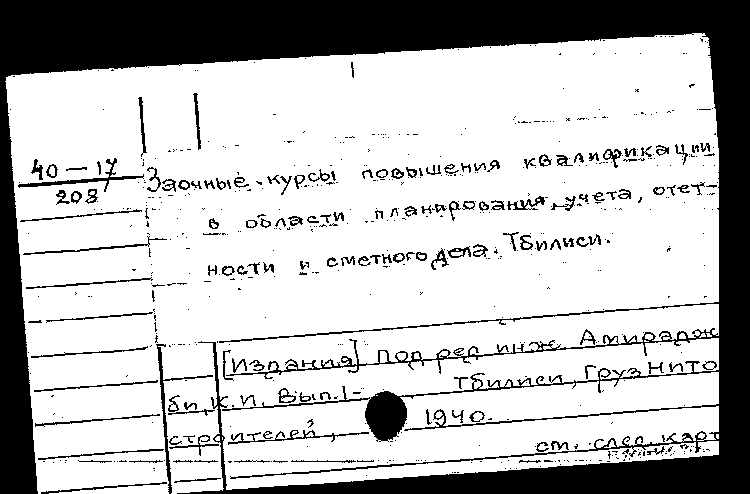 40 — 17
203
Заочные курсы повышения квалификации
в области планирования, учета, отет-
ности и сметного дела. Тбилиси.
[Издания] Под ред инж. Амирадж
би, К.И. Вып. 1- Тбилиси, ГрузНИТО
строителей, 1940.
см. след. карт